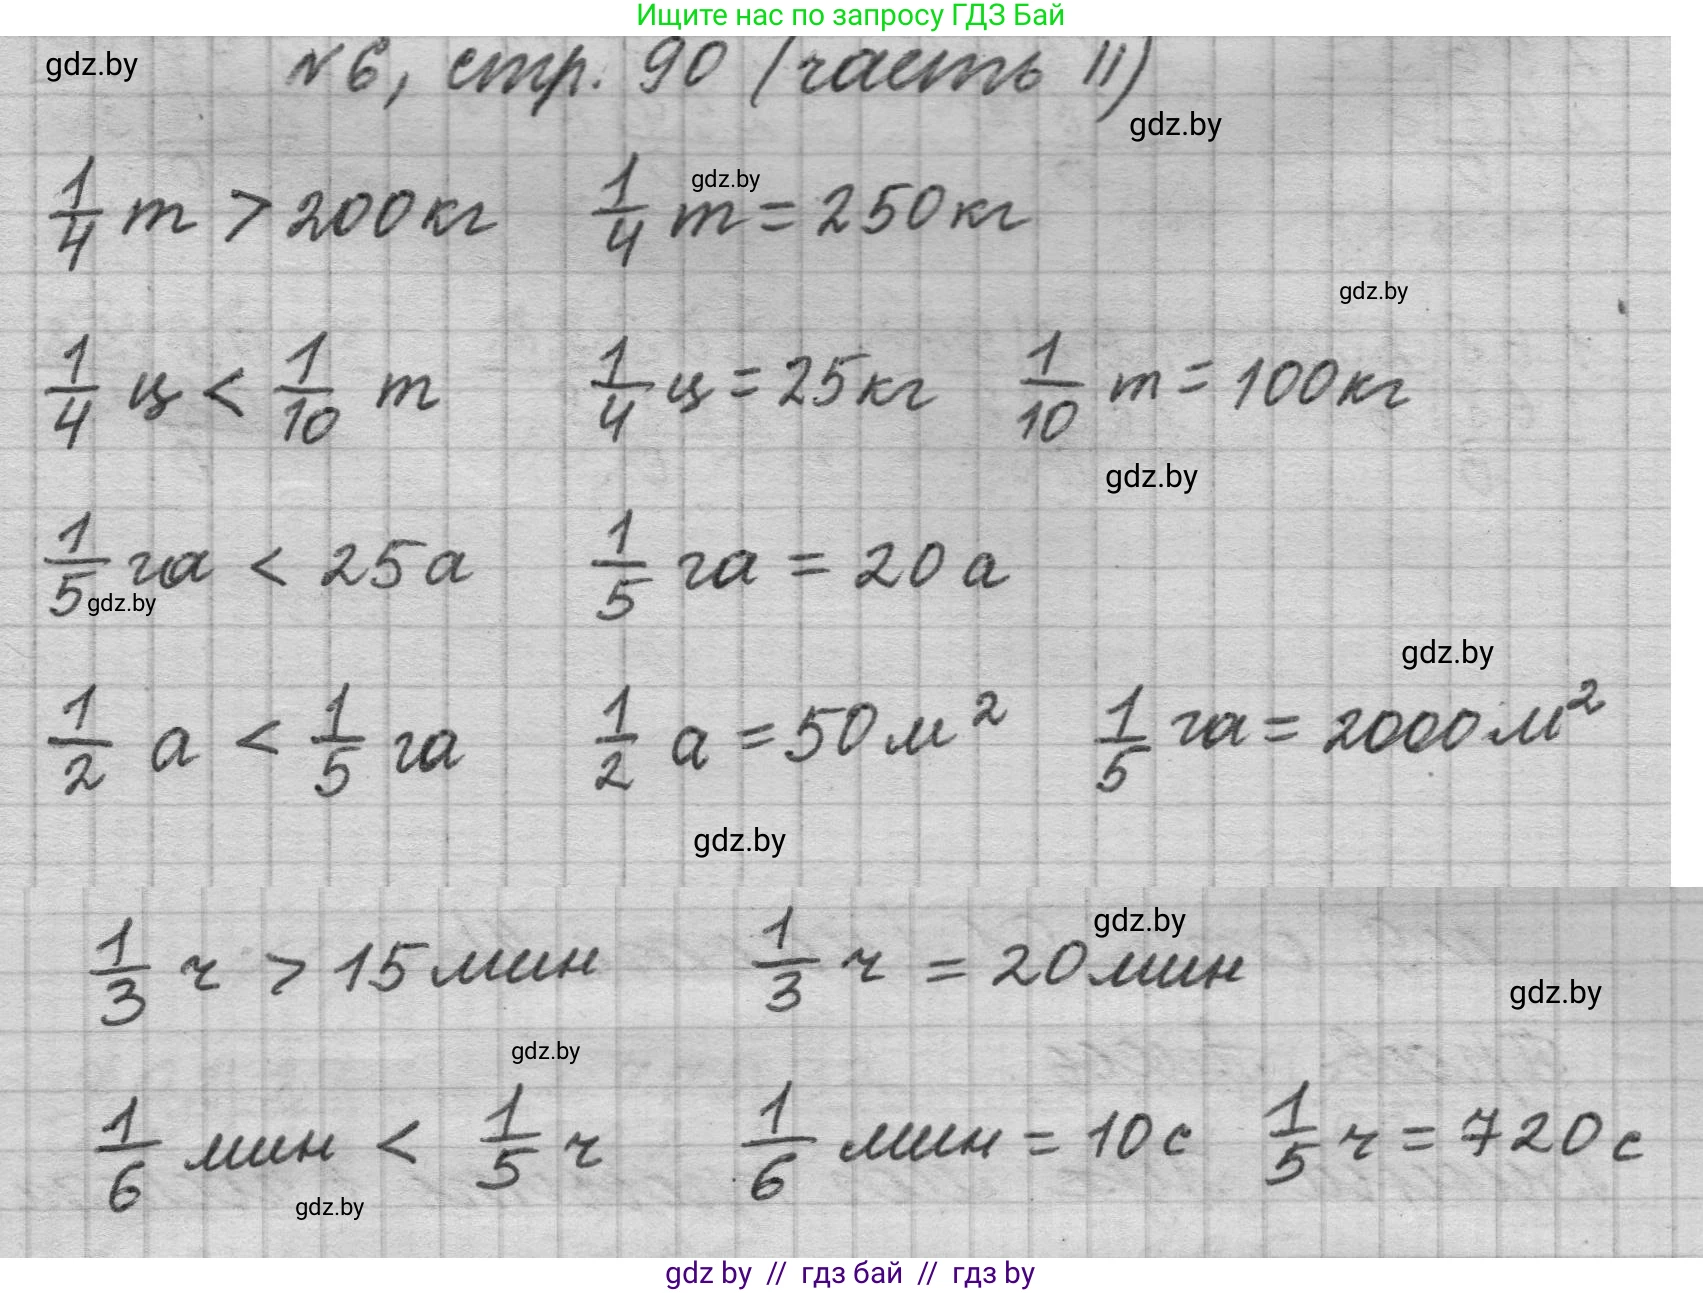 Ищите нас по запросу ГДЗ Бай
gdz.by
№6, стр. 90 (часть II)
gdz.by
1/4 т > 200кг 1/4 т = 250кг
gdz.by
gdz.by
1/4 ц < 1/10 т 1/4 ц = 25кг 1/10 т = 100кг
gdz.by
1/5 га < 25а 1/5 га = 20 а
gdz.by
gdz.by
1/2 а < 1/5 га 1/2 а = 50м² 1/5 га = 2000м²
gdz.by
gdz.by
1/3 ч > 15мин 1/3 ч = 20мин
gdz.by
gdz.by
1/6 мин < 1/5 ч 1/6 мин = 10с 1/5 ч = 720с
gdz.by
gdz by // гдз бай // гдз by